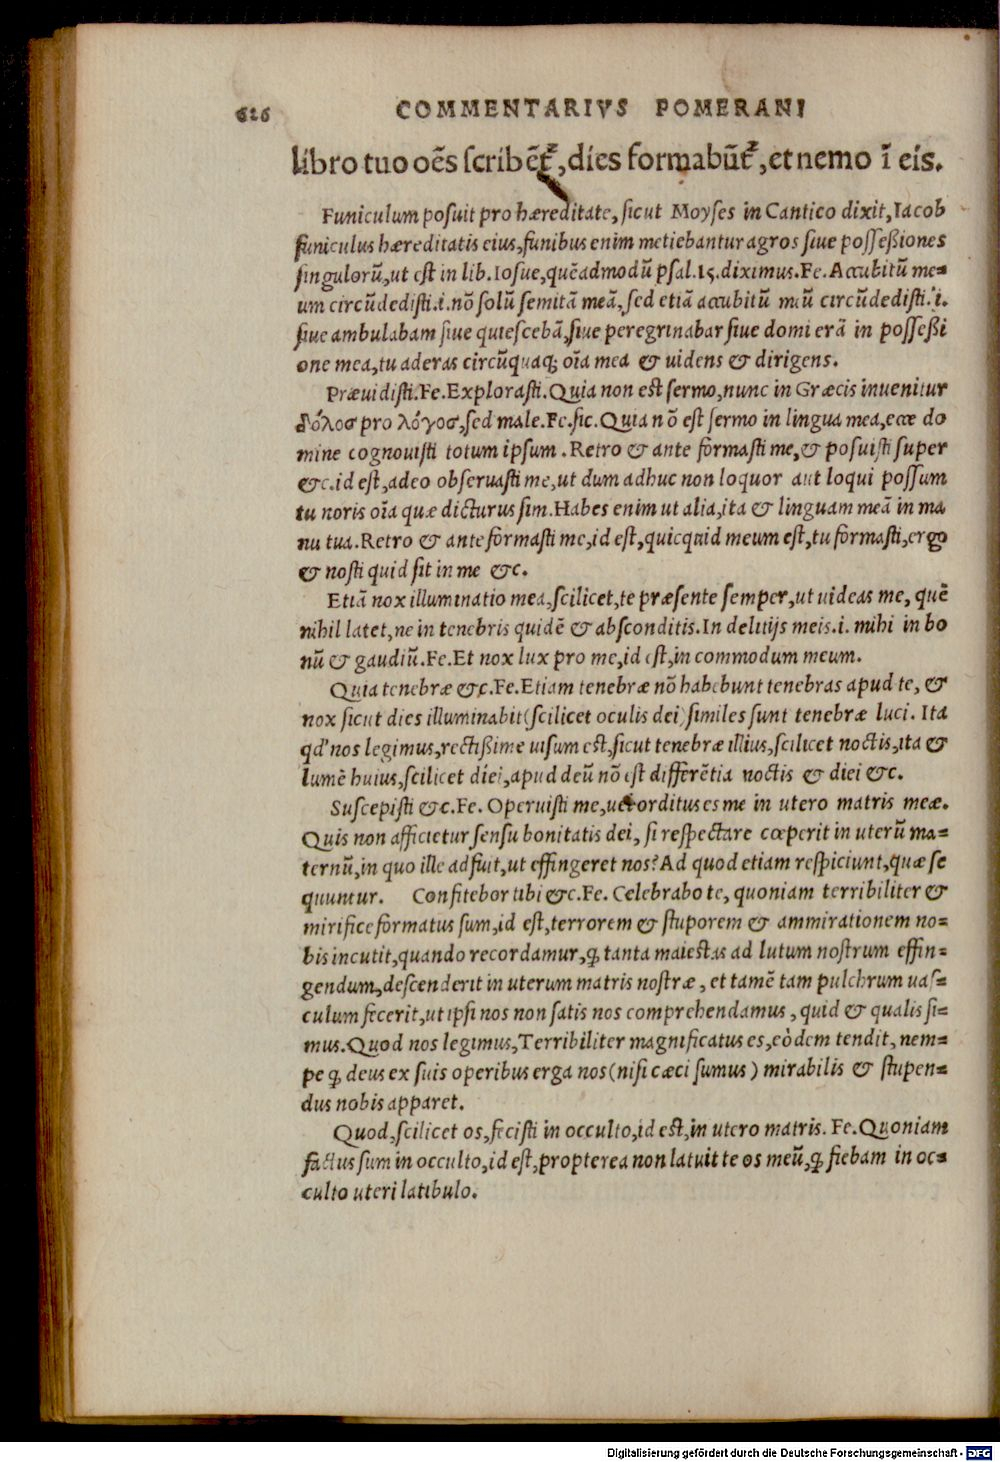 626 COMMENTARIVS POMERANI
libro tuo oēs scribēt᷑, dies formabūt᷑, et nemo ī eis.
Funiculum posuit pro hæreditate, sicut Moyses in Cantico dixit, Iacob
funiculus hæreditatis eius, funibus enim metiebantur agros siue posseßiones
singulorū, ut est in lib. Iosue, quēadmodū psal. 15. diximus. Fe. Accubitū me=
um circūdedisti .i. nō solū semitā meā, sed etiā accubitū meū circūdedisti .i.
siue ambulabam siue quiescebā, siue peregrinabar siue domi erā in posseßi
one mea, tu aderas circūquaq; oīa mea & uidens & dirigens.
Præuidisti. Fe. Explorasti. Quia non est sermo, nunc in Græcis inuenitur
δόλοσ pro λόγοσ, sed male. Fe. sic. Quia nō est sermo in lingua mea, ecce do
mine cognouisti totum ipsum. Retro & ante formasti me, & posuisti super
&c. id est, adeo obseruasti me, ut dum adhuc non loquor aut loqui possum
tu noris oīa quæ dicturus sim. Habes enim ut alia, ita & linguam meā in ma
nu tua. Retro & ante formasti me, id est, quicquid meum est, tu formasti, ergo
& nosti quid sit in me &c.
Etiā nox illuminatio mea, scilicet, te præsente semper, ut uideas me, quē
nihil latet, ne in tenebris quidē & absconditis. In delitijs meis .i. mihi in bo
nū & gaudiū. Fe. Et nox lux pro me, id est, in commodum meum.
Quia tenebræ &c. Fe. Etiam tenebræ nō habebunt tenebras apud te, &
nox sicut dies illuminabit (scilicet oculis dei) similes sunt tenebræ luci. Ita
qd' nos legimus, rectißime uisum est, sicut tenebræ illius, scilicet noctis, ita &
lumē huius, scilicet diei, apud deū nō est differētia noctis & diei &c.
Suscepisti &c. Fe. Operuisti me, uel orditus es me in utero matris meæ.
Quis non afficietur sensu bonitatis dei, si respectare cœperit in uterū ma=
ternū, in quo ille adfuit, ut effingeret nos? Ad quod etiam respiciunt, quæ se
quuntur. Confitebor tibi &c. Fe. Celebrabo te, quoniam terribiliter &
mirifice formatus sum, id est, terrorem & stuporem & ammirationem no=
bis incutit, quando recordamur, ꝙ tanta maiestas ad lutum nostrum effin=
gendum, descenderit in uterum matris nostræ, et tamē tam pulchrum uas=
culum fecerit, ut ipsi nos non satis nos comprehendamus, quid & qualis si=
mus. Quod nos legimus, Terribiliter magnificatus es, eòdem tendit, nem=
pe ꝙ deus ex suis operibus erga nos (nisi cæci sumus) mirabilis & stupen=
dus nobis apparet.
Quod, scilicet os, fecisti in occulto, id est, in utero matris. Fe. Quoniam
factus sum in occulto, id est, propterea non latuit te os meū, ꝙ fiebam in oc=
culto uteri latibulo.
Digitalisierung gefördert durch die Deutsche Forschungsgemeinschaft - DFG